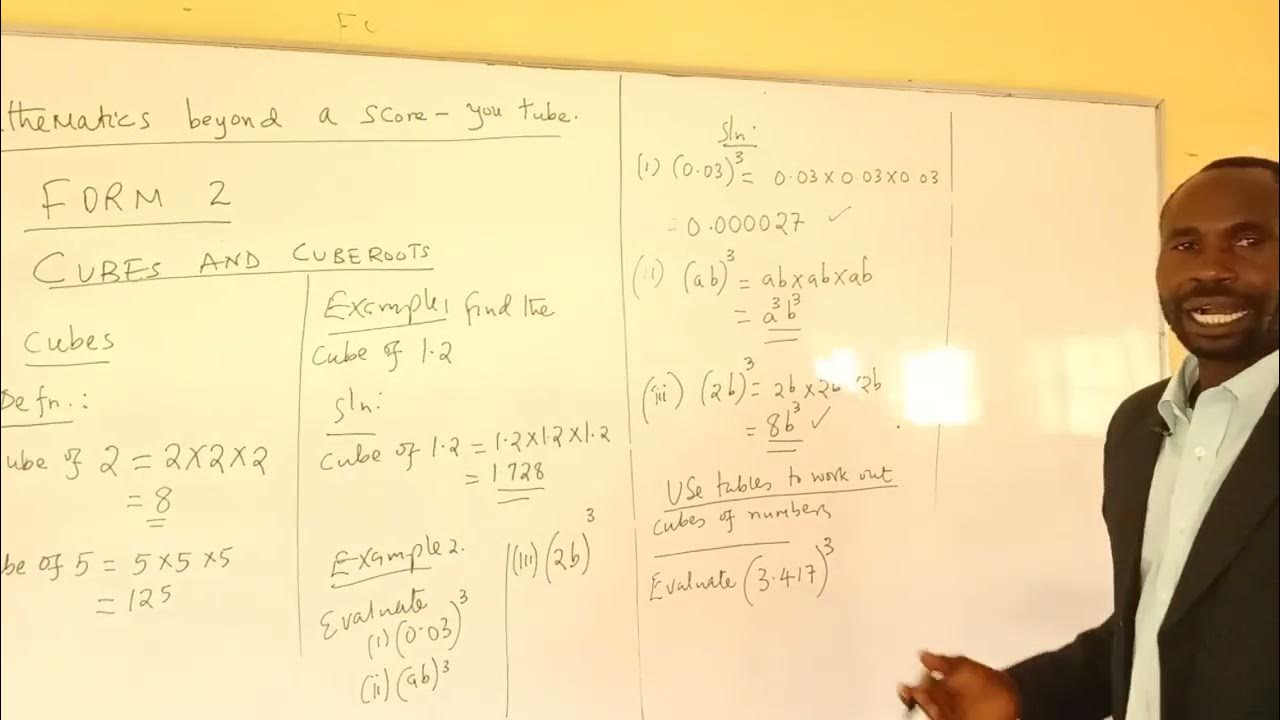 Fc
thematics beyond a score - you tube.
FORM 2
CUBES AND CUBEROOTS
Cubes
Defn.:
ube of 2 = 2×2×2
= 8
be of 5 = 5×5×5
= 125
Example 1 find the
cube of 1.2
Sln:
cube of 1.2 = 1.2×1.2×1.2
= 1.728
Example 2.
Evaluate
(i) (0.03)³
(ii) (ab)³
(iii) (2b)³
Sln:
(i) (0.03)³ = 0.03×0.03×0.03
= 0.000027 ✓
(ii) (ab)³ = ab×ab×ab
= a³b³
(iii) (2b)³ = 2b×2b 2b
= 8b³ ✓
Use tables to work out
cubes of numbers
Evaluate (3.417)³